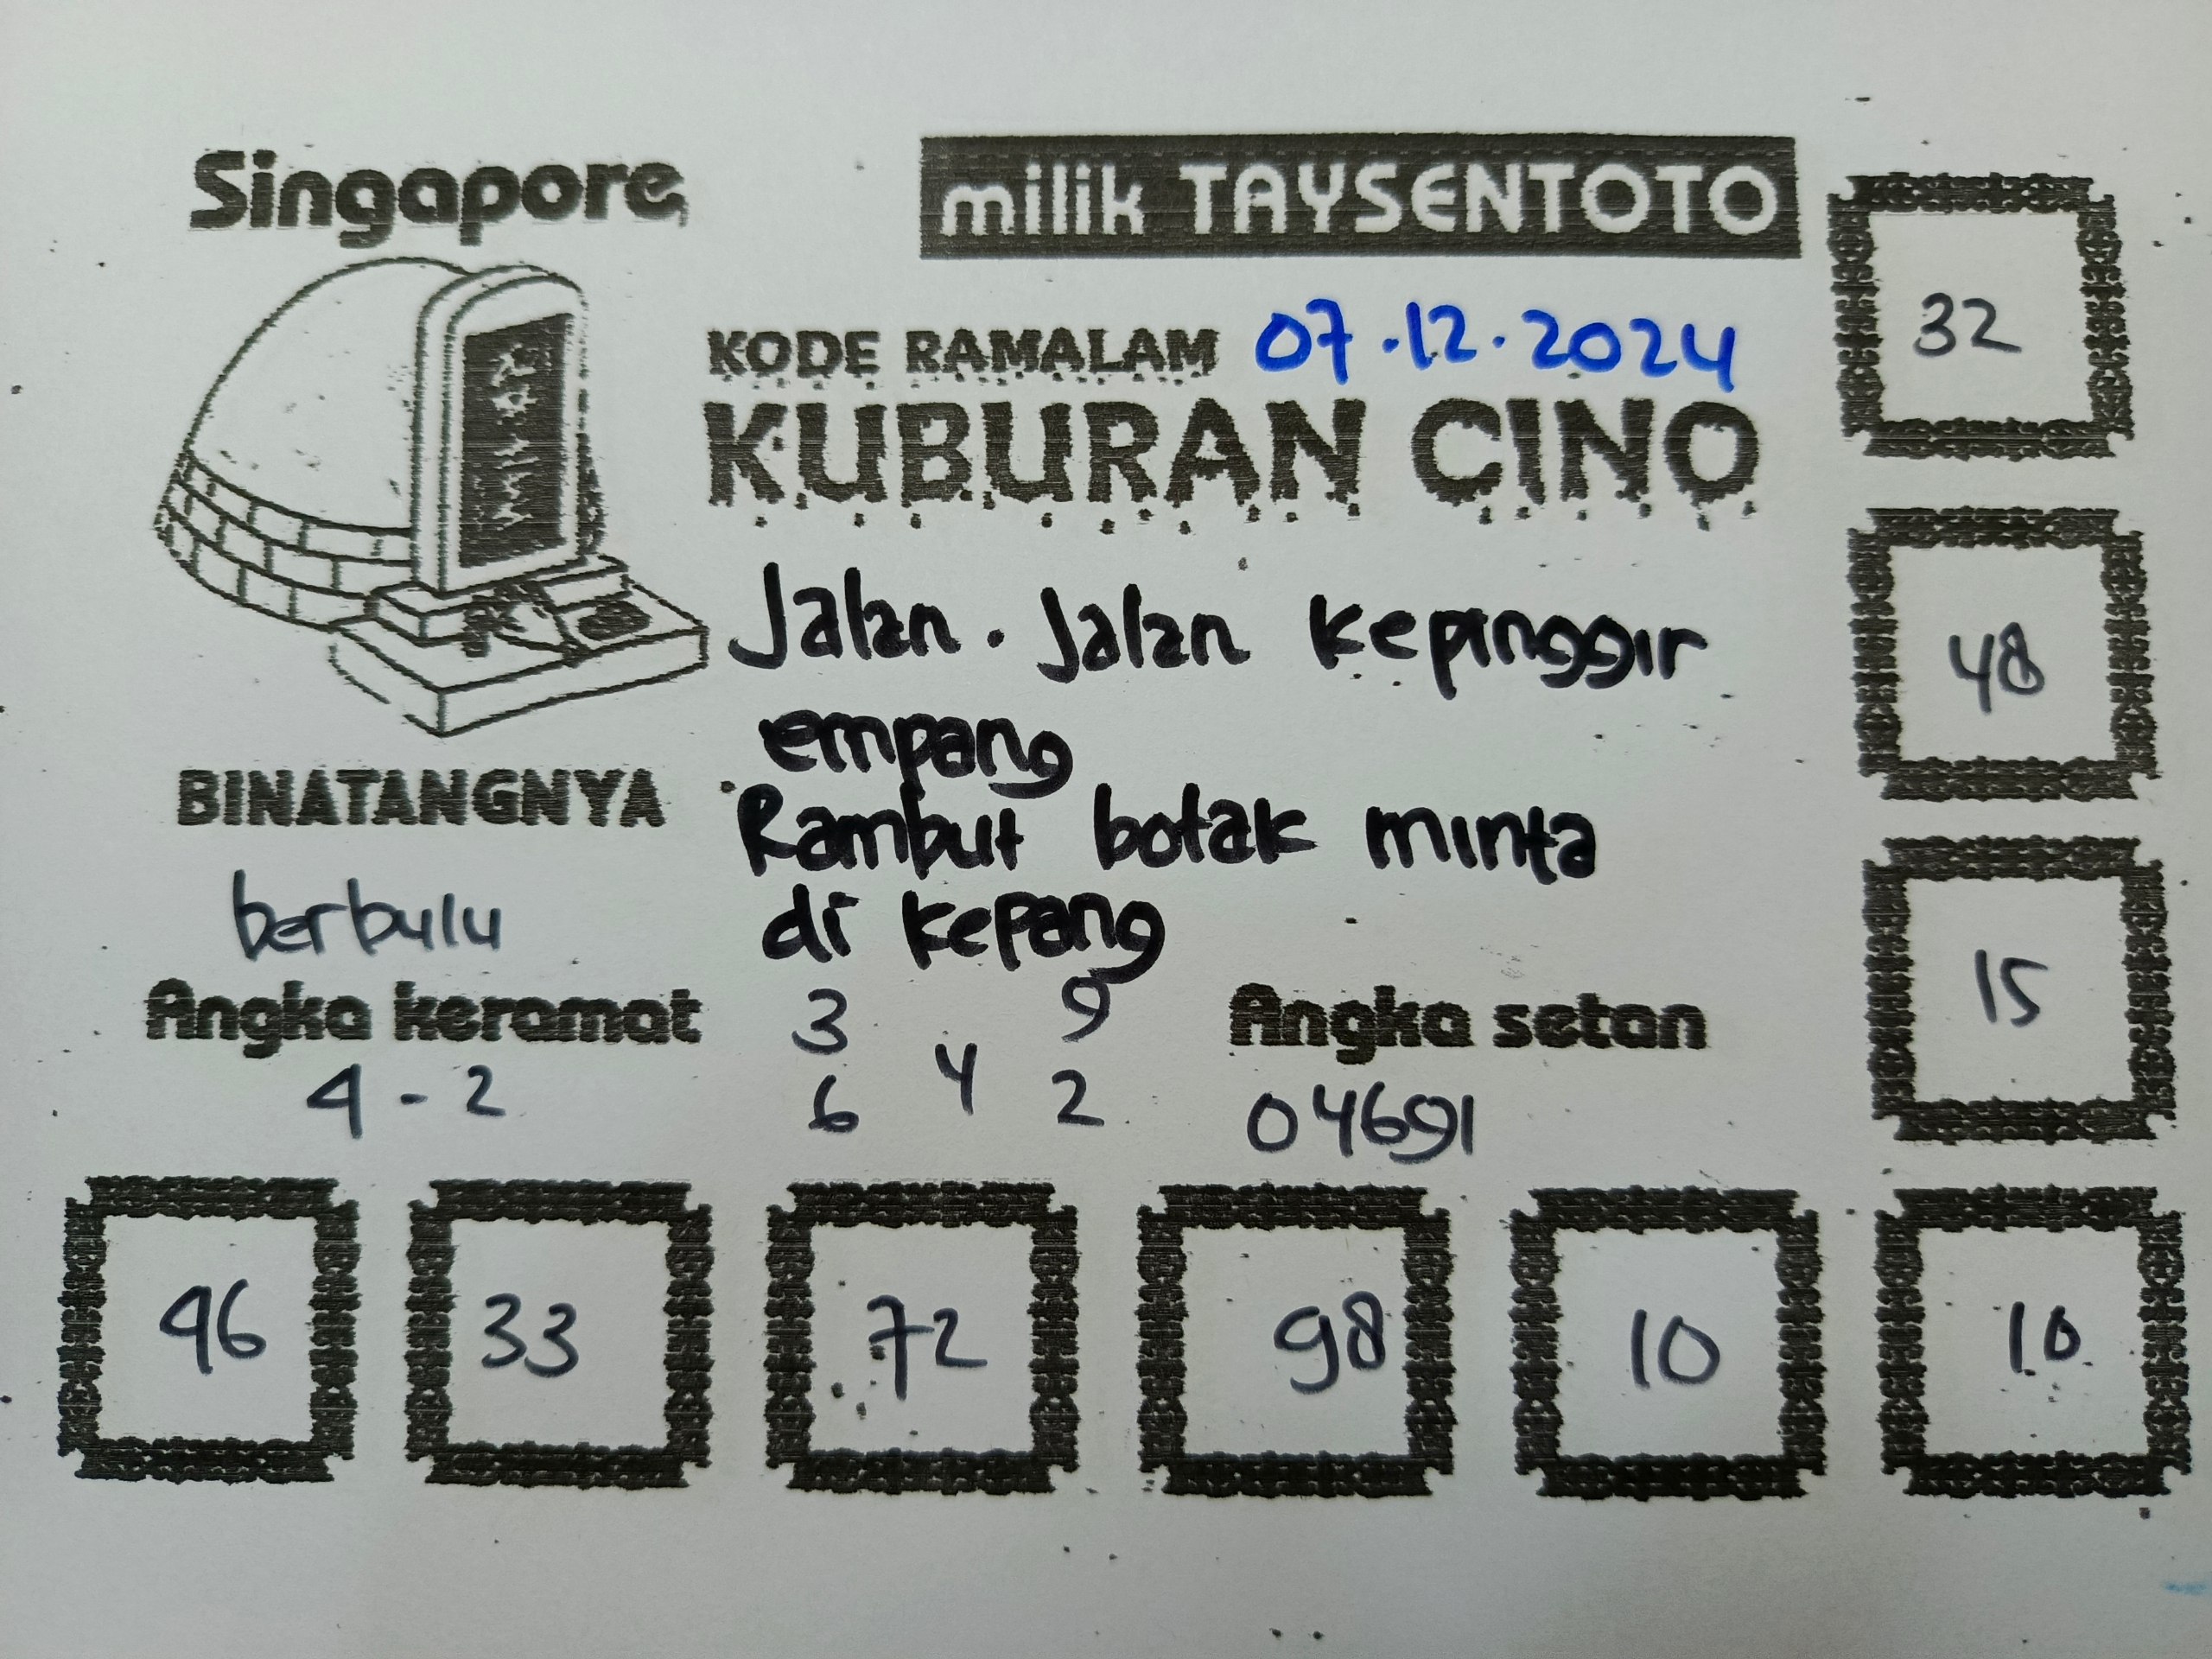 Singapore
milik TAYSENTOTO
32
KODE RAMALAM 07.12.2024
KUBURAN CINO
48
Jalan. Jalan kepinggir
empang
BINATANGNYA
Rambut botak minta
berbulu
di kepang
15
Angka keramat
3 9
Angka setan
4 - 2
4
6 2
04691
96
33
72
98
10
10